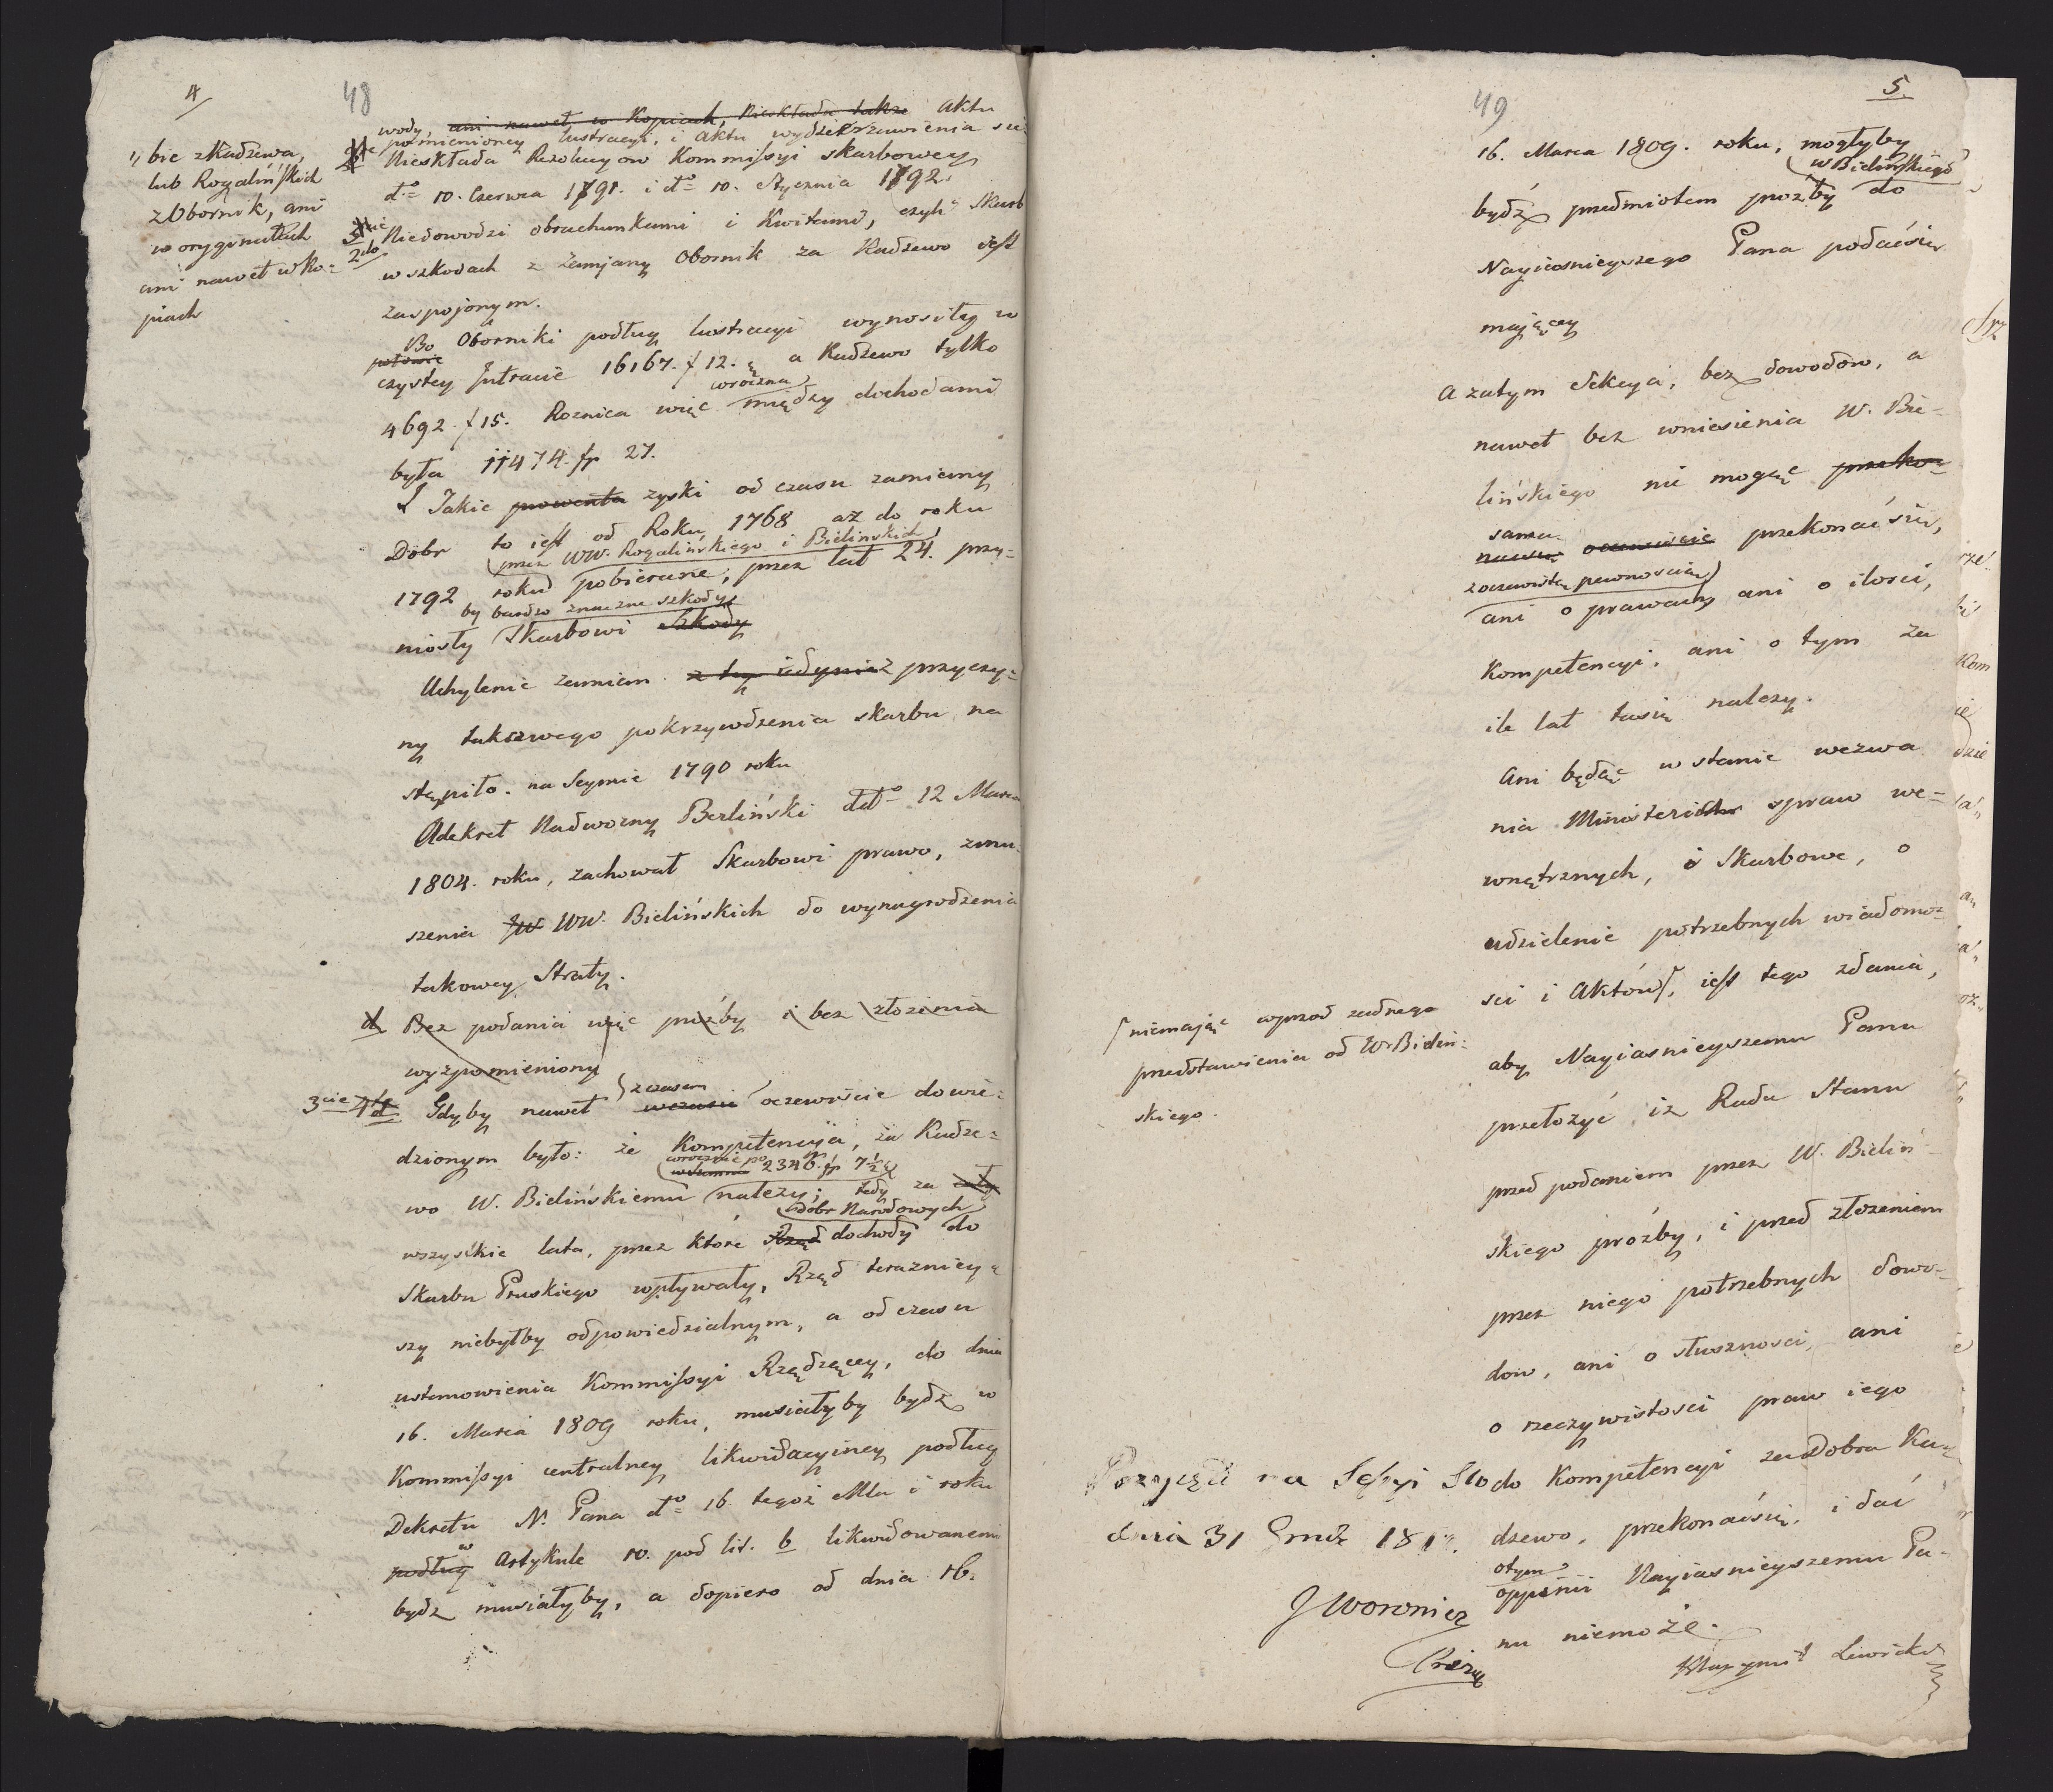 4
48
bie z Kadzewa,
lub Rogalińskich
z Obornik, ani
w oryginałach
ani nawet w Ko-
piach
wody, ani nawet w Kopiach, Nieskłada także aktu
pomienioney lustracyi, i aktu wydzierzawienia
Nieskłada Rezolucyow Kommissyi skarbowey
dto 10. Czerwca 1791. i dto 10. Stycznia 1792.
2do Niedowodzi obrachunkami i Kwitami, czyli Skarb
w szkodach z zamjany Obornik za Kadzewo jest
zaspojonym.
Bo Oborniki podług lustracyi wynosiły w
połowie
czystey Jntracie 16167. f 12. a Kadzewo tylko
woroczna
4692. f 15. Roznica więc między dochodami
była 11474. fp 27.
Jakie prowenta zyski od czasu zamieny
Dobr to iest od Roku 1768 aż do roku
przez WW. Rogalińskiego i Bielinskich
1792 roku pobierane, przez lat 24. przy-
by bardzo znaczne szkody
niosły Skarbowi szkody
Uchylenie zamian z tey iedynie z przyczy-
ny takowego pokrzywdzenia skarbu na
stąpiło. na Seymie 1790 roku
A dekret Nadworny Berliński ddto 12 Marca
1804. roku, zachował Skarbowi prawo, zmu-
szenia JW WW. Bielińskich do wynagrodzenia
takowey Straty.
d Bez podania więc prózby i bez złożenia
wyżpomieniony
3cie Gdyby nawet z czasem wczasie oczewiście dowie-
dzionym było: że Kompetencyia, za Kadze-
corocznie po 2346. fp 7½
wo W. Bielińskiemu należy; tedy za
Dobr Narodowych
wszystkie lata, przez które Rząd dochody do
Skarbu Pruskiego wpływały, Rząd teraźniey-
szy niebyłby odpowiedzialnym, a od czasu
ustanowienia Kommissyi Rządzącey, do dnia
16. Marca 1809 roku, musiałyby bydź w
Kommissyi centralney likwidacyiney podług
Dekretu N. Pana dto 16. tegoż Mca i roku
podług w Artykule 10. pod lit. b likwidowanemi
bydź musiałyby, a dopiero od dnia 16.
49
5.
16. Marca 1809. roku, mogłyby
W Bielińskiego
bydź przedmiotem prozby do
Nayiasnieyszego Pana podaćsię
mającey
A zatym Sekcya, bez dowodów, a
nawet bez wniesienia W. Bie-
lińskiego nie mogąc przeko-
sama
oczewiście przekonaćsię,
z oczewistą pewnością
ani o prawach, ani o ilosci,
Kompetencyi, ani o tym za
ile lat tasię należy.
Ani będąc w stanie wezwa
nia Ministerio spraw we-
wnętrznych, i Skarbowe, o
udzielenie potrzebnych wiadomo-
sci i Aktów, iest tego zdania,
niemając wprzod żadnego
przedstawienia od W. Bieliń-
skiego.
aby Nayiasnieyszemu Panu
przełożyć iż Rada Stanu
przed podaniem przez W. Bieliń-
skiego prózby, i przed złożeniem
przez niego potrzebnych dowo-
dow, ani o słuszności, ani
o rzeczywistości praw iego
do Kompetencyi za Dobra Ka-
dzewo, przekonaćsię, i dać
otym
oppinii Nayiasnieyszemu Pa-
nu niemoże.
dnia 31 Grud
J Woronicz
Prezyd
Lewicki